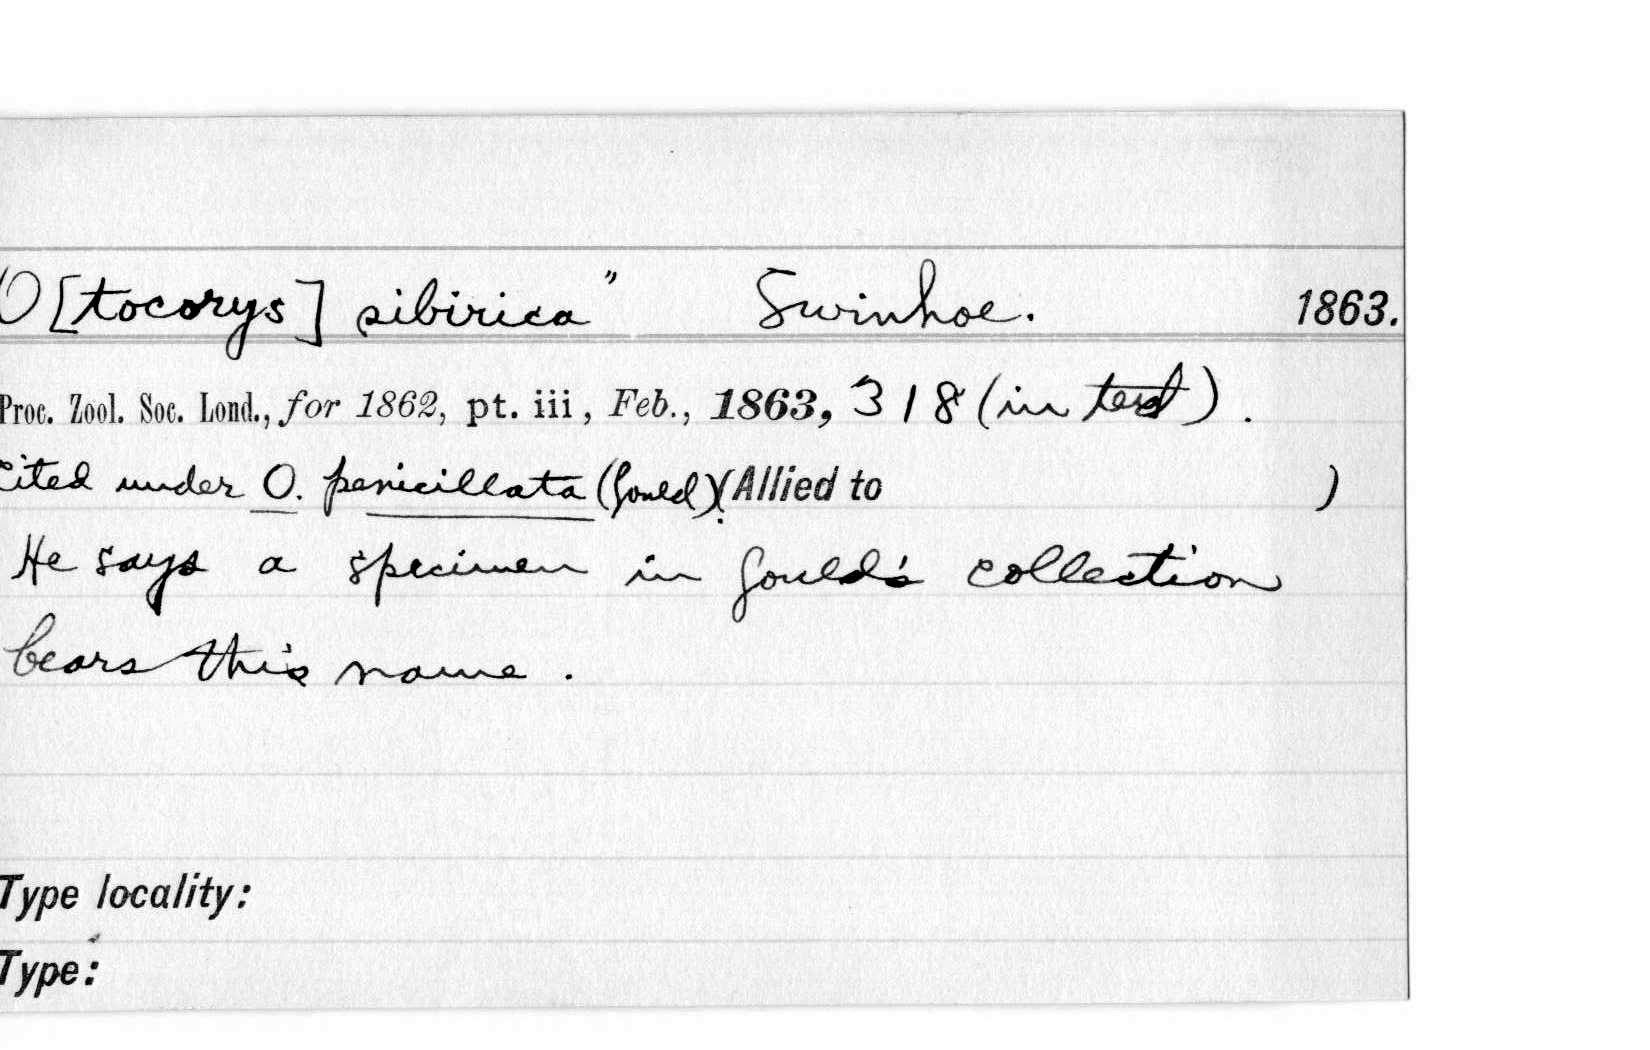 O[tocorys] sibirica" Swinhoe. 1863.
Proc. Zool. Soc. Lond., for 1862, pt. iii, Feb., 1863, 318 (in text).
Cited under O. penicillata (Gould). (Allied to )
He says a specimen in Gould's collection
bears this name.
Type locality:
Type: